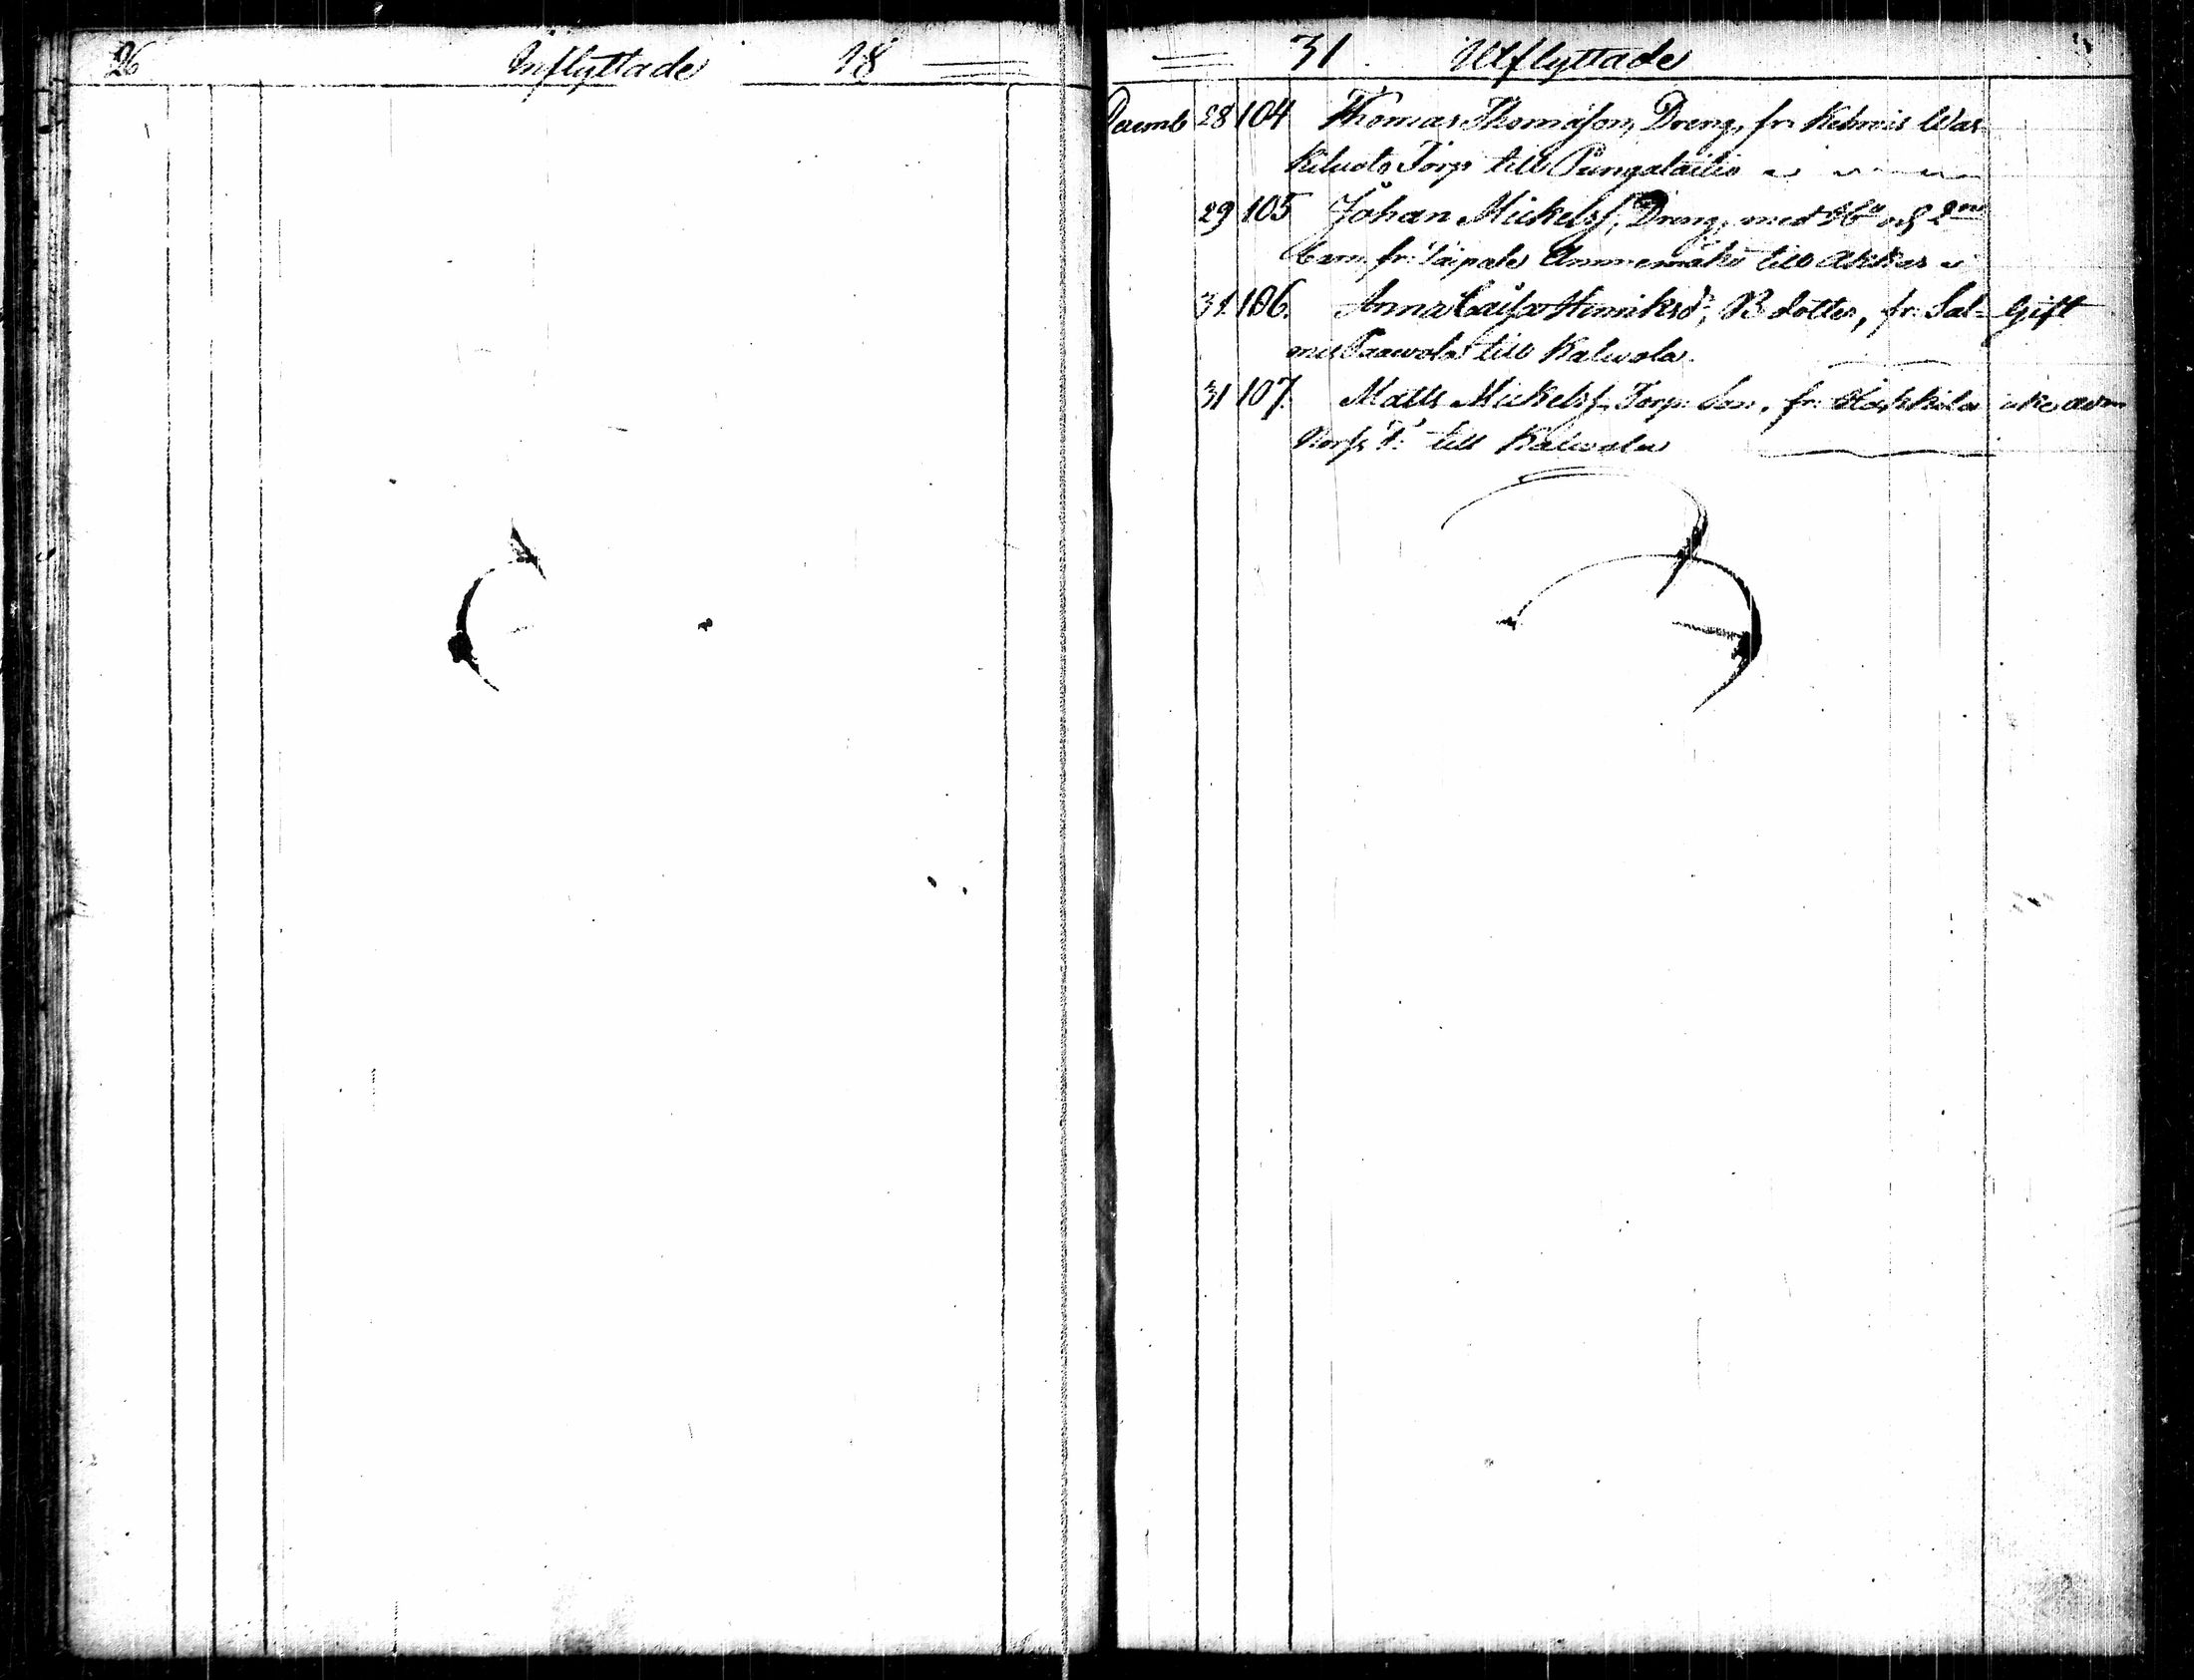 26 Inflyttade 18
31 Utflyttade
Decemb 28 104 Thomas Thomasson, Dreng, fr. Kelwois Was
kiluoto Torp till Pungalaitio
29 105 Johan Mickelss, Dreng, med H. och 2ne
barn, fr. Taipale Ammemäki till Akkas
31. 106. Anna Caisa Henriksdr, B. dotter, fr. Sal- Gift
mis Paavola till Kalvola.
31 107. Matts Mickelss, Torp. Son, fr. Hakkila
Korps T. till Kalvola